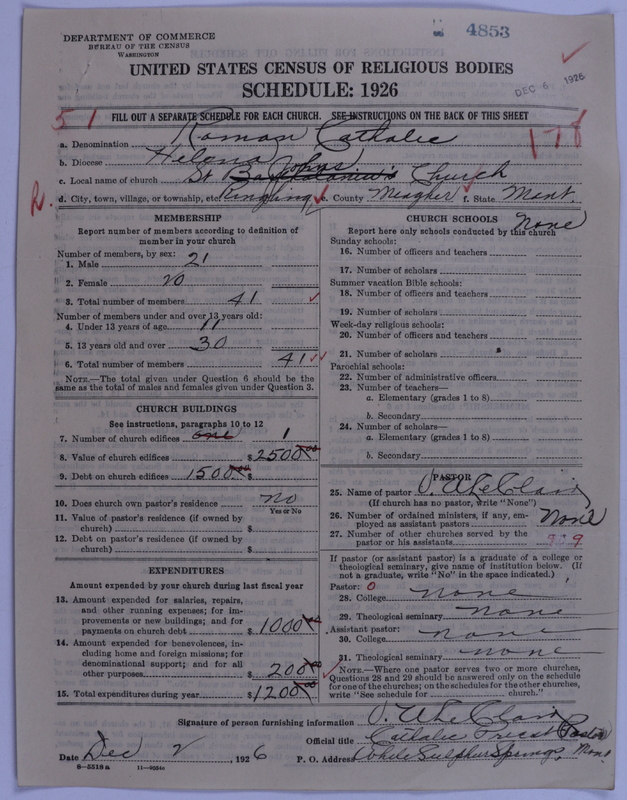 4853
DEPARTMENT OF COMMERCE
BUREAU OF THE CENSUS
WASHINGTON
UNITED STATES CENSUS OF RELIGIOUS BODIES
SCHEDULE: 1926
DEC 6 1926
51
178
FILL OUT A SEPARATE SCHEDULE FOR EACH CHURCH. SEE INSTRUCTIONS ON THE BACK OF THIS SHEET
a. Denomination Roman Catholic
b. Diocese Helena
c. Local name of church St Johns Church
d. City, town, village, or township, etc. Ringling e. County Meagher f. State Mont.
MEMBERSHIP
Report number of members according to definition of member in your church
Number of members, by sex:
1. Male 21
2. Female 20
3. Total number of members 41
Number of members under and over 13 years old:
4. Under 13 years of age 11
5. 13 years old and over 30
6. Total number of members 41
NOTE.—The total given under Question 6 should be the
same as the total of males and females given under Question 3.
CHURCH BUILDINGS
See instructions, paragraphs 10 to 12
7. Number of church edifices one 1
8. Value of church edifices $ 2500.00
9. Debt on church edifices 1500.00 $
10. Does church own pastor's residence no
Yes or No
11. Value of pastor's residence (if owned by
church) $
12. Debt on pastor's residence (if owned by
church) $
EXPENDITURES
Amount expended by your church during last fiscal year
13. Amount expended for salaries, repairs,
and other running expenses; for im-
provements or new buildings; and for
payments on church debt $ 1000.00
14. Amount expended for benevolences, in-
cluding home and foreign missions; for
denominational support; and for all
other purposes $ 200.00
15. Total expenditures during year $ 1200.00
CHURCH SCHOOLS None
Report here only schools conducted by this church
Sunday schools:
16. Number of officers and teachers
17. Number of scholars
Summer vacation Bible schools:
18. Number of officers and teachers
19. Number of scholars
Week-day religious schools:
20. Number of officers and teachers
21. Number of scholars
Parochial schools:
22. Number of administrative officers
23. Number of teachers—
a. Elementary (grades 1 to 8)
b. Secondary
24. Number of scholars—
a. Elementary (grades 1 to 8)
b. Secondary
PASTOR
25. Name of pastor
(If church has no pastor, write "None")
26. Number of ordained ministers, if any, em-
ployed as assistant pastors None
27. Number of other churches served by the
pastor or his assistants 9
If pastor (or assistant pastor) is a graduate of a college or
theological seminary, give name of institution below. (If
not a graduate, write "No" in the space indicated.)
Pastor: 0
28. College none
29. Theological seminary none
Assistant pastor:
30. College none
31. Theological seminary none
NOTE.—Where one pastor serves two or more churches,
Questions 28 and 29 should be answered only on the schedule
for one of the churches; on the schedules for the other churches,
write "See schedule for ........ church."
Signature of person furnishing information
Official title Catholic Priest Pastor
Date Dec 2, 1926 P. O. Address White Sulphur Springs, Mont
8—5518a